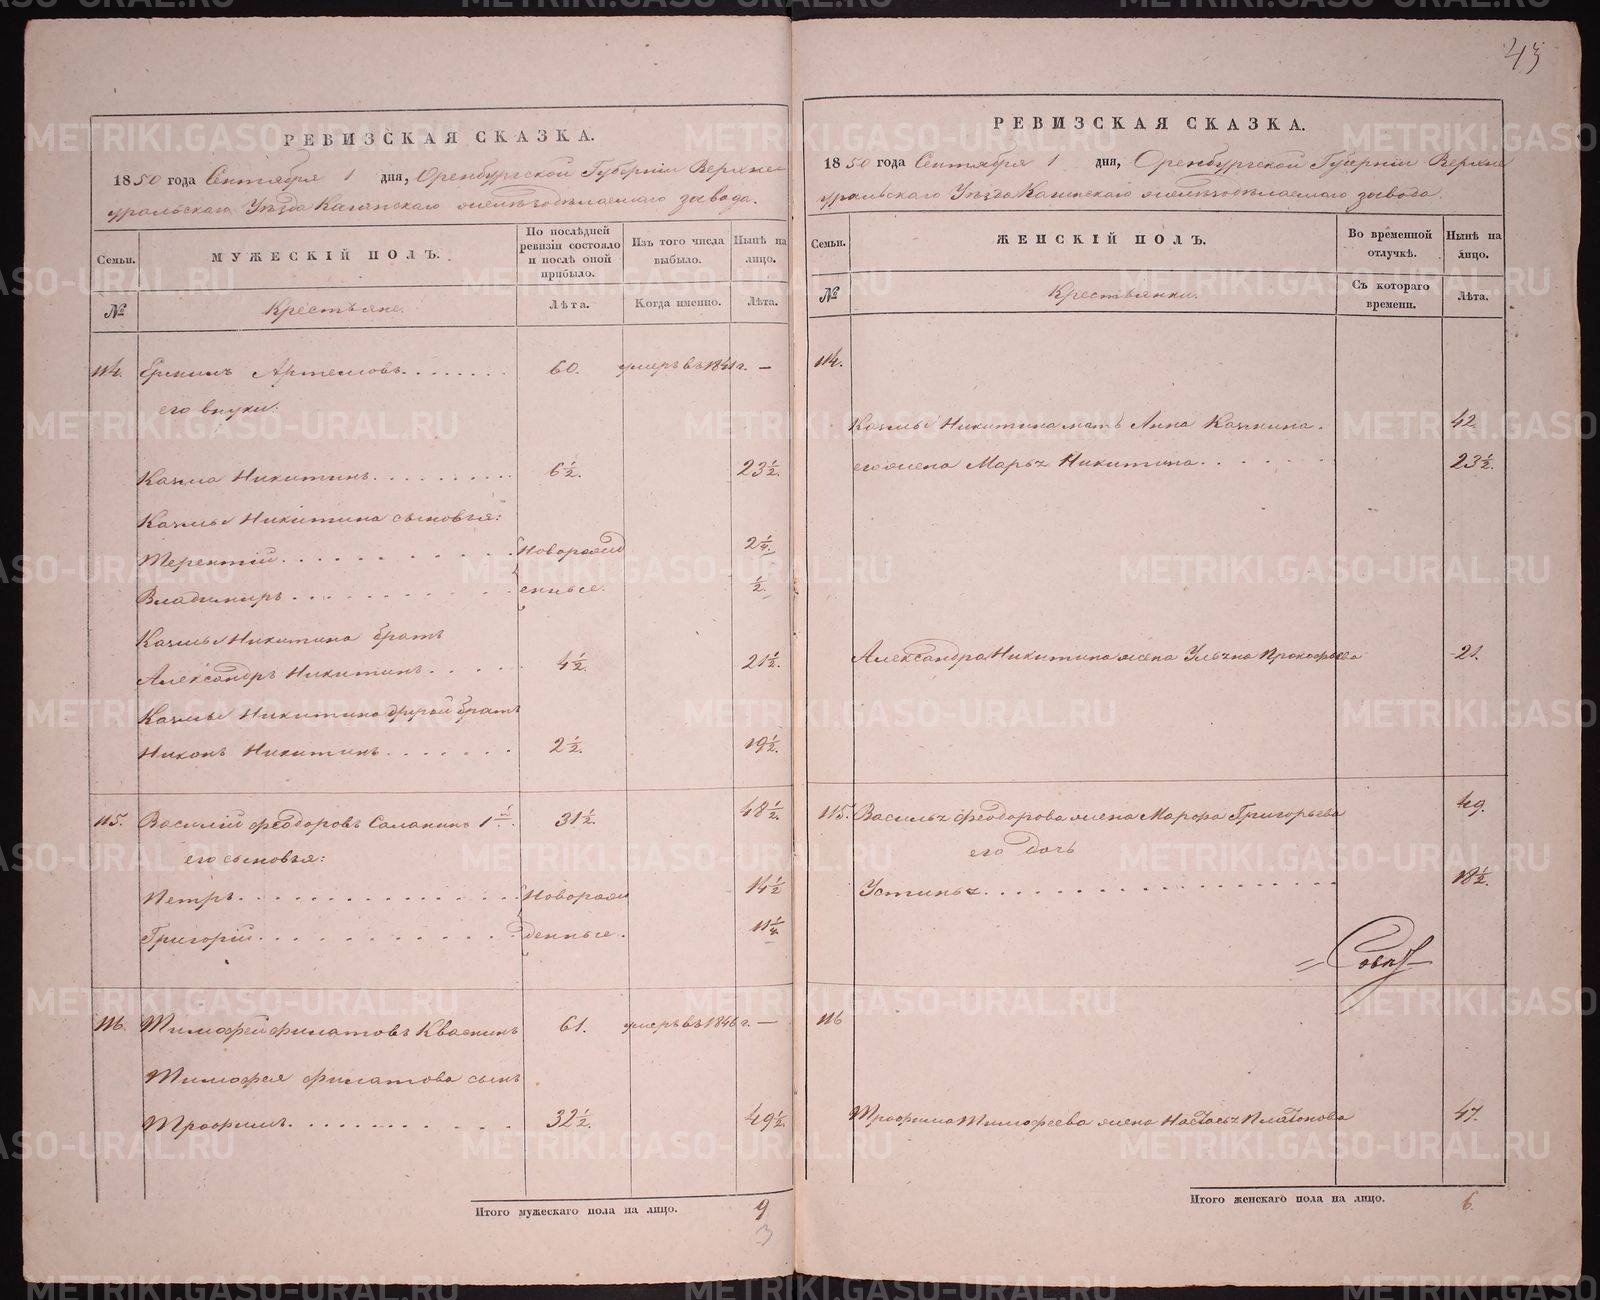 43
РЕВИЗСКАЯ СКАЗКА.
1850 года Сентября 1 дня, Оренбургской Губернiи Верхне-
уральскаго Уѣзда Кагинскаго желѣзодѣлаемаго завода.
Семьи.
МУЖЕСКIЙ ПОЛЪ.
По послѣдней ревизiи состояло и послѣ оной прибыло.
Изъ того числа выбыло.
Нынѣ на лицо.
№
Крестьяне.
Лѣта.
Когда именно.
Лѣта.
114. Артемовъ 60. умеръ въ 1841 г. —
его внуки:
Казма Никитинъ 6½. 23½.
Казмы Никитина сыновья:
Терентiй Новорожд 2¼.
Владимиръ енные. ½.
Казмы Никитина братъ
Александръ Никитинъ 4½. 21½.
Казмы Никитина другой братъ
Никонъ Никитинъ 2½. 19½.
115. Василiй Феодоровъ 1й 31½. 48½.
его сыновья:
Петръ Новорож 14½
Григорiй денные. 11¼.
116. Тимофей Филатовъ Кваснинъ 61. умеръ въ 1846 г. —
Тимофея Филатова сынъ
Трофимъ 32½. 49½.
Итого мужескаго пола на лицо. 9
3
РЕВИЗСКАЯ СКАЗКА.
1850 года Сентября 1 дня, Оренбургской Губернiи Верхне
уральскаго Уѣзда Кагинскаго желѣзодѣлаемаго завода.
Семьи.
ЖЕНСКIЙ ПОЛЪ.
Во временной отлучкѣ.
Нынѣ на лицо.
№
Крестьянки.
Съ котораго времени.
Лѣта.
114.
Казмы Никитина мать Анна 42.
его жена Марья Никитина 23½.
Александра Никитина жена Ульяна Прокофьева 21.
115. Василья Феодорова жена Марфа Григорьева 49.
его дочь
Устинья 18½.
116
Трофима Тимофеева жена Настасья Платонова 47.
Итого женскаго пола на лицо. 6.
METRIKI.GASO-URAL.RU